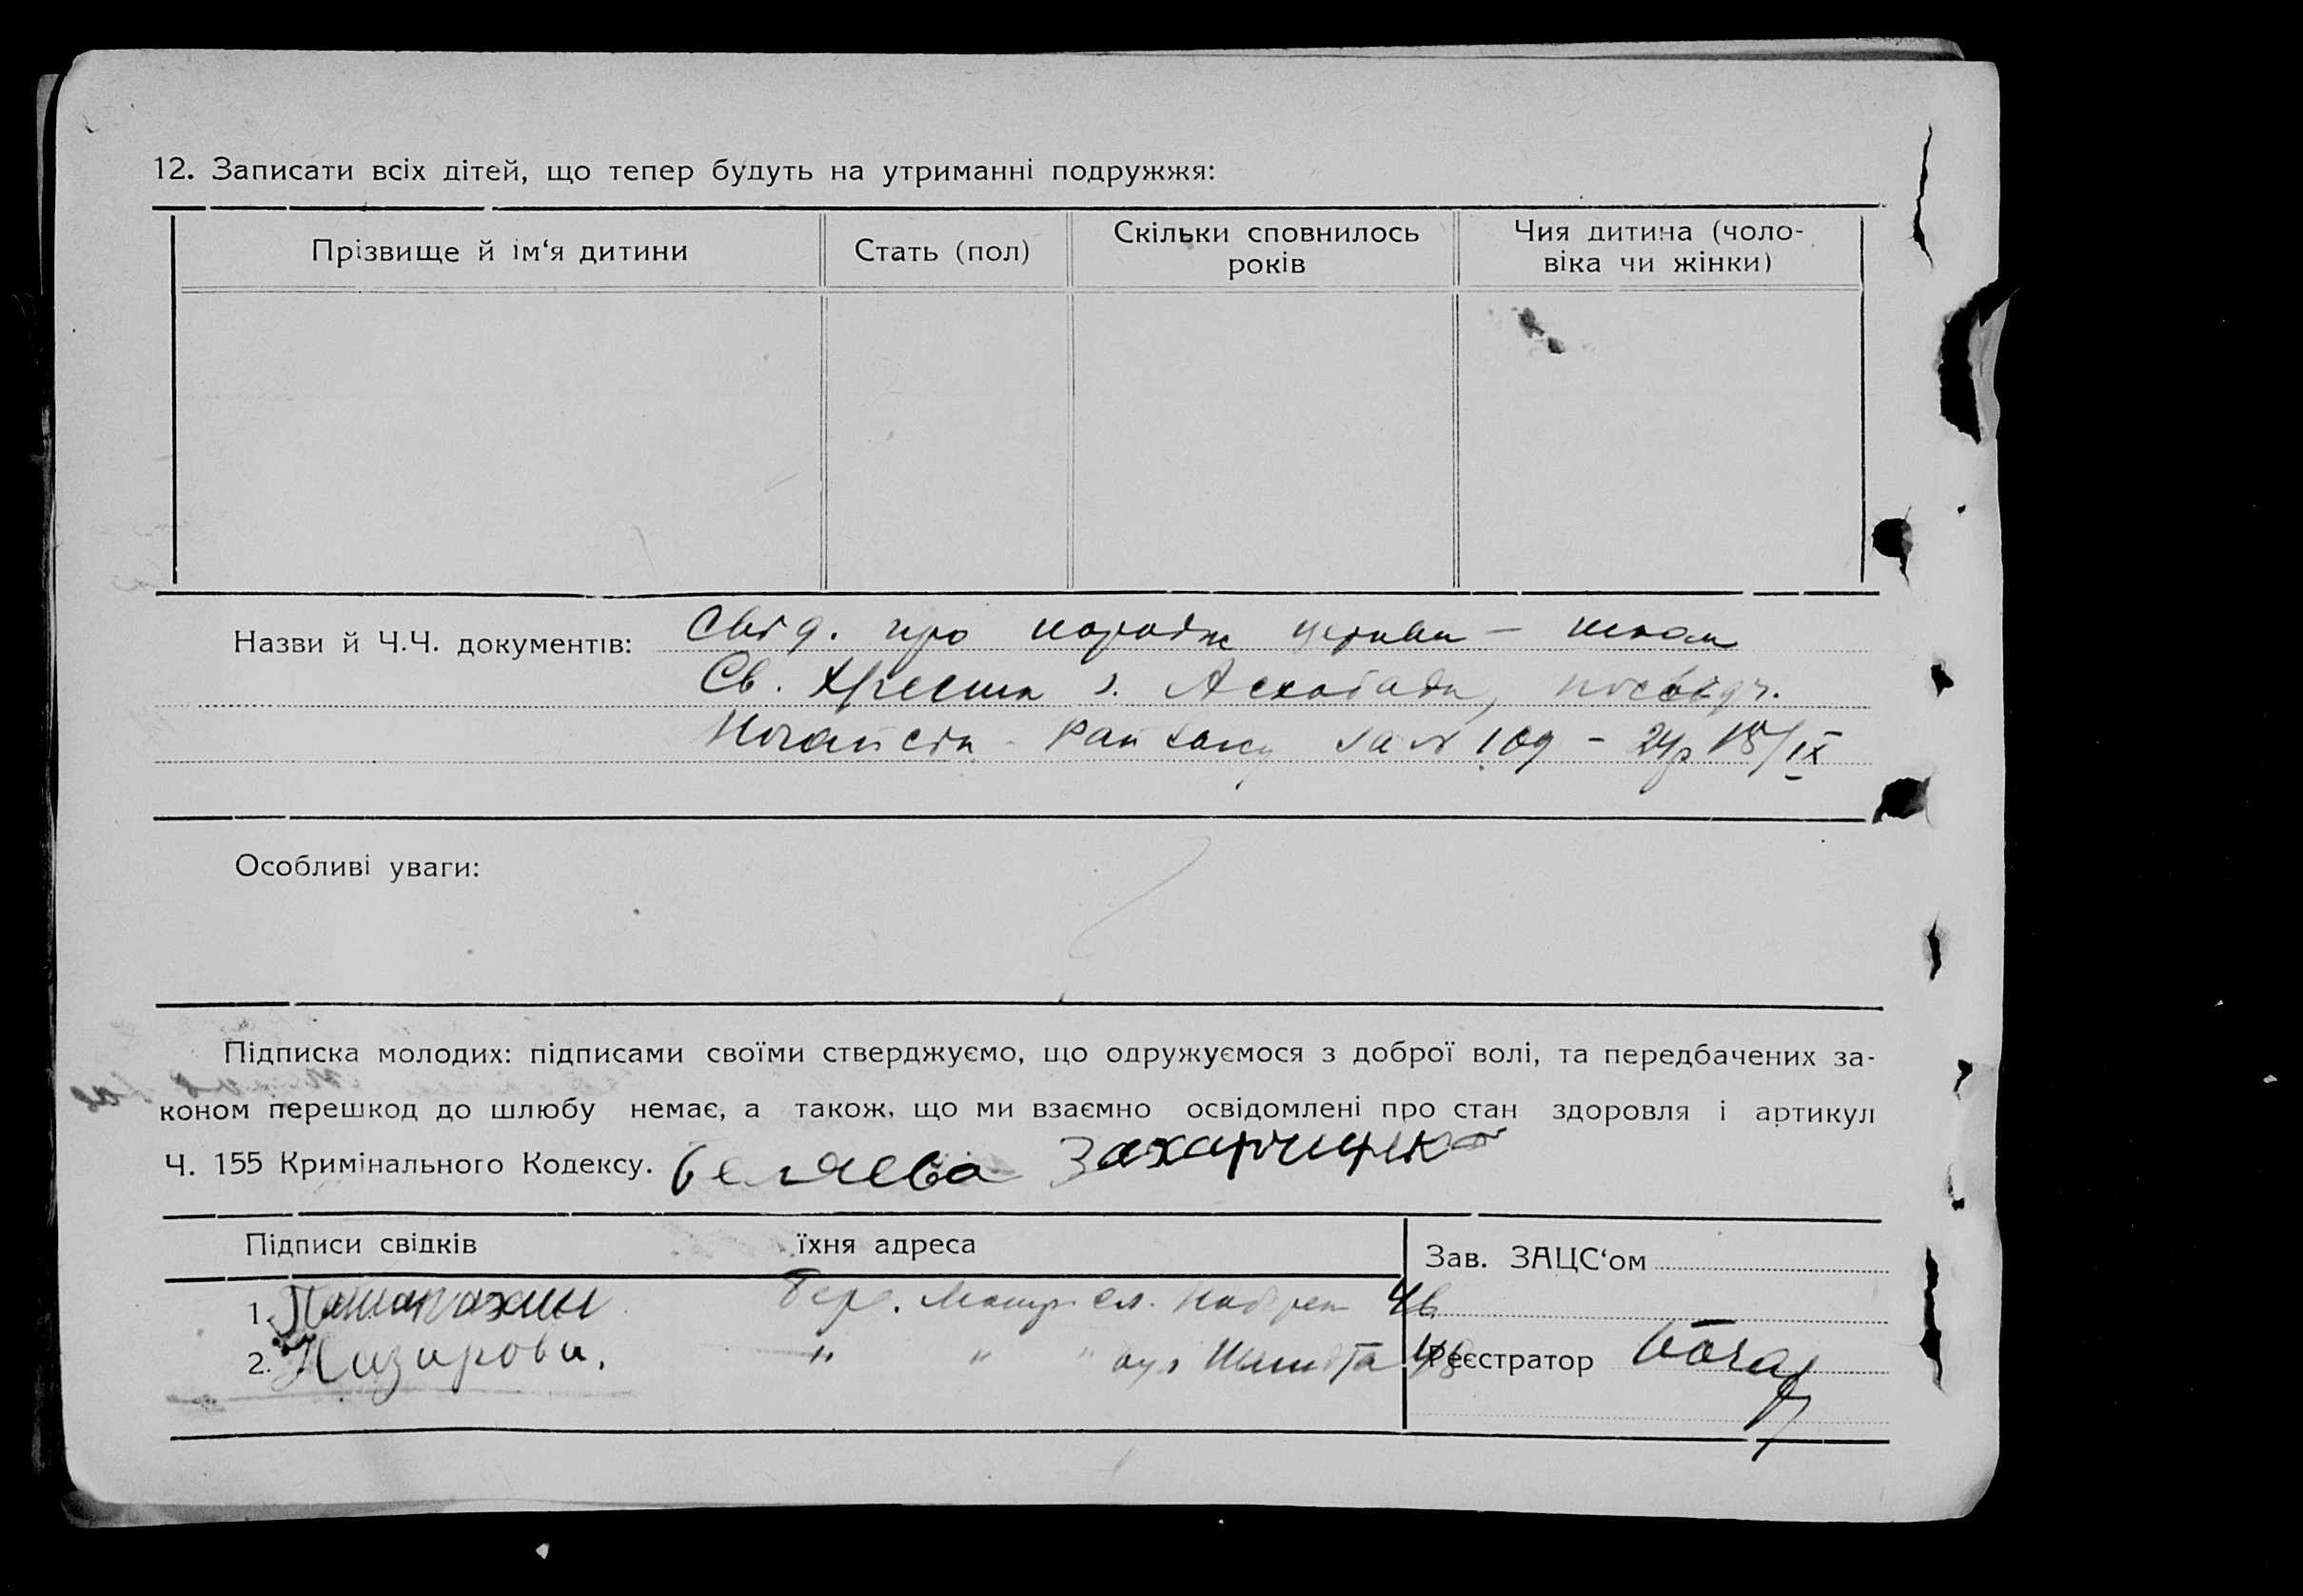 12. Записати всіх дітей, що тепер будуть на утриманні подружжя:
Прізвище й ім‘я дитини
Стать (пол)
Скільки сповнилось
років
Чия дитина (чоло-
віка чи жінки)
Назви й Ч.Ч. документів: Свід. про народж церкви –
Св. Хреста г. Асхабада, посвідч.
за № 109 – 24р 15/IX
Особливі уваги:
Підписка молодих: підписами своїми стверджуємо, що одружуємося з доброї волі, та передбачених за-
коном перешкод до шлюбу немає, а також, що ми взаємно освідомлені про стан здоровля і артикул
Ч. 155 Кримінального Кодексу. Беляева Захарченко
Підписи свідків
їхня адреса
Зав. ЗАЦС‘ом
1. Бер.
2. Назарова. " " " вул Шмидта 48
Реєстратор